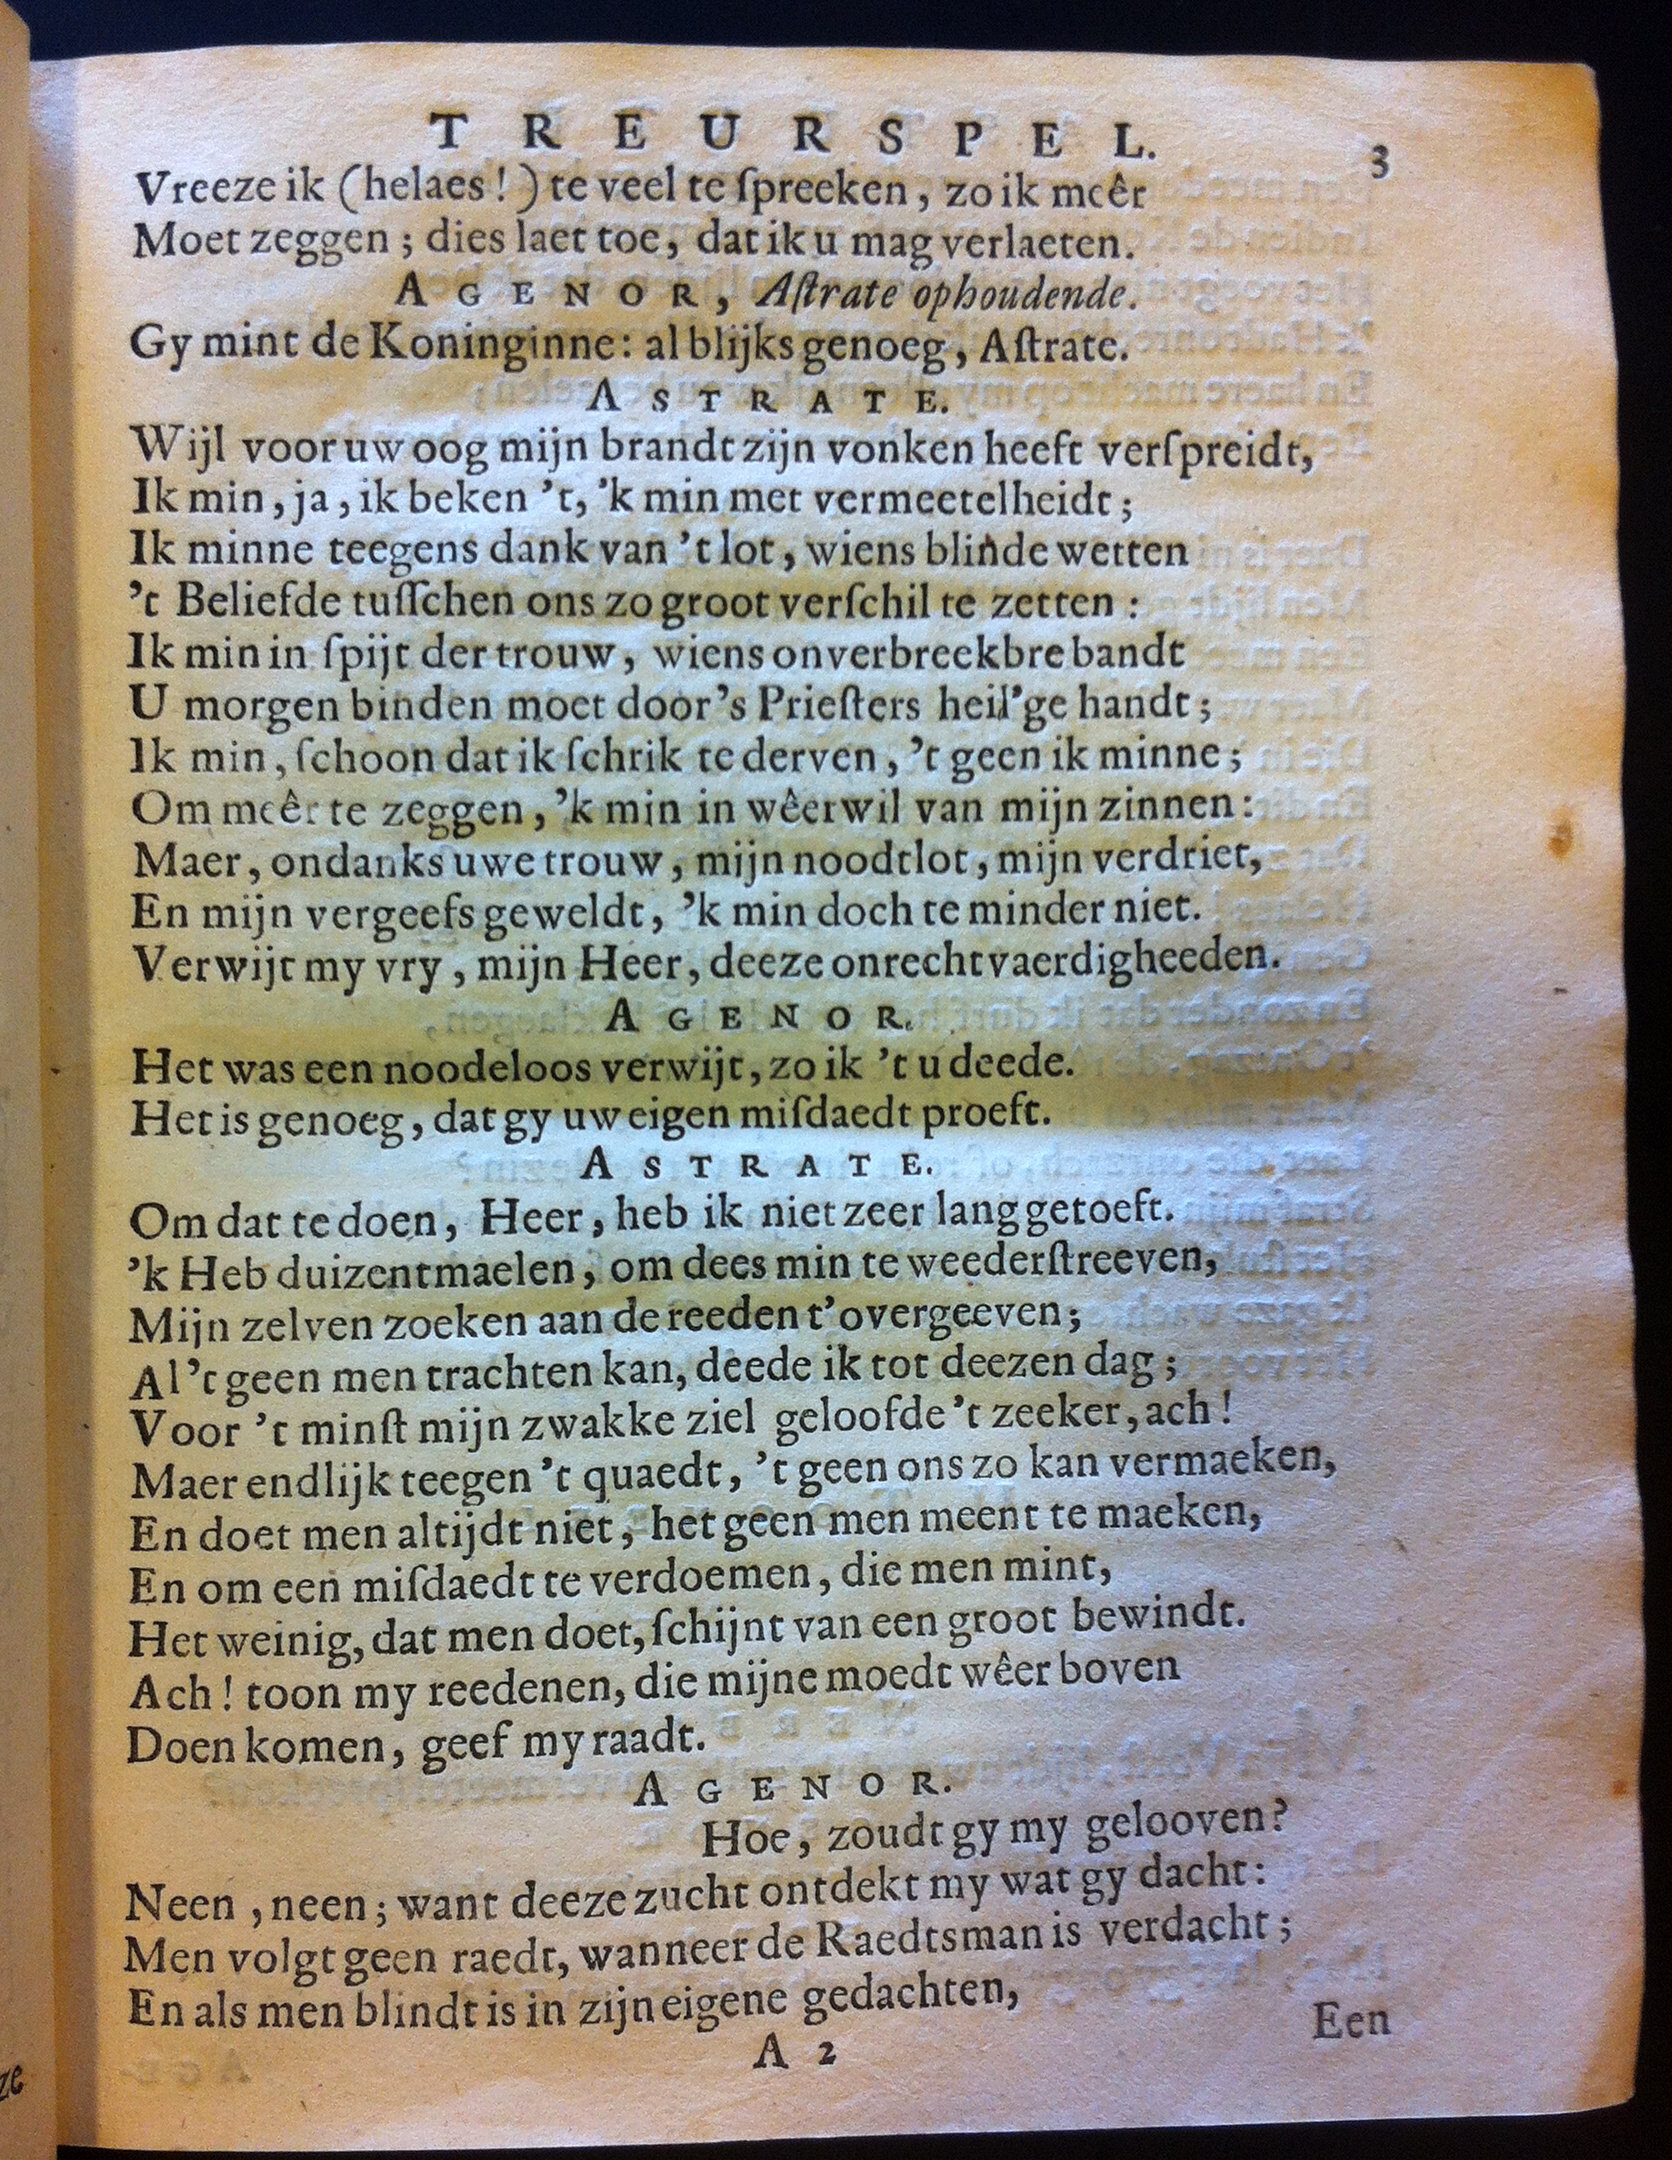 TREURSPEL. 3
Vreeze ik (helaes!) te veel te ſpreeken, zo ik meêr
Moet zeggen; dies laet toe, dat ik u mag verlaeten.
AGENOR, Aſtrate ophoudende.
Gy mint de Koninginne: al blijks genoeg, Aſtrate.
ASTRATE.
Wijl voor uw oog mijn brandt zijn vonken heeft verſpreidt,
Ik min, ja, ik beken 't, 'k min met vermeetelheidt;
Ik minne teegens dank van 't lot, wiens blinde wetten
't Beliefde tuſſchen ons zo groot verſchil te zetten:
Ik min in ſpijt der trouw, wiens onverbreekbre bandt
U morgen binden moet door 's Prieſters heil'ge handt;
Ik min, ſchoon dat ik ſchrik te derven, 't geen ik minne;
Om meêr te zeggen, 'k min in wêerwil van mijn zinnen:
Maer, ondanks uwe trouw, mijn noodtlot, mijn verdriet,
En mijn vergeefs geweldt, 'k min doch te minder niet.
Verwijt my vry, mijn Heer, deeze onrechtvaerdigheeden.
AGENOR.
Het was een noodeloos verwijt, zo ik 't u deede.
Het is genoeg, dat gy uw eigen miſdaedt proeft.
ASTRATE.
Om dat te doen, Heer, heb ik niet zeer lang getoeft.
'k Heb duizentmaelen, om dees min te weederſtreeven,
Mijn zelven zoeken aan de reeden t'overgeeven;
Al 't geen men trachten kan, deede ik tot deezen dag;
Voor 't minſt mijn zwakke ziel geloofde 't zeeker, ach!
Maer endlijk teegen 't quaedt, 't geen ons zo kan vermaeken,
En doet men altijdt niet, het geen men meent te maeken,
En om een miſdaedt te verdoemen, die men mint,
Het weinig, dat men doet, ſchijnt van een groot bewindt.
Ach! toon my reedenen, die mijne moedt wêer boven
Doen komen, geef my raadt.
AGENOR.
Hoe, zoudt gy my gelooven?
Neen, neen; want deeze zucht ontdekt my wat gy dacht:
Men volgt geen raedt, wanneer de Raedtsman is verdacht;
En als men blindt is in zijn eigene gedachten,
A 2 Een
ze